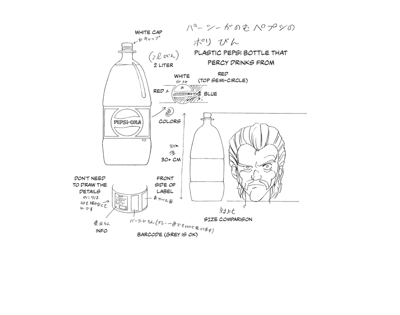 パーシーがのむペプシの
ポリびん
PLASTIC PEPSI BOTTLE THAT
PERCY DRINKS FROM
WHITE CAP
2 LITER
WHITE
RED
(TOP SEMI-CIRCLE)
RED
BLUE
PEPSI-COLA
COLORS
30+ CM
DON'T NEED
TO DRAW THE
DETAILS
FRONT
SIDE OF
LABEL
INFO
BARCODE (GREY IS OK)
SIZE COMPARISON